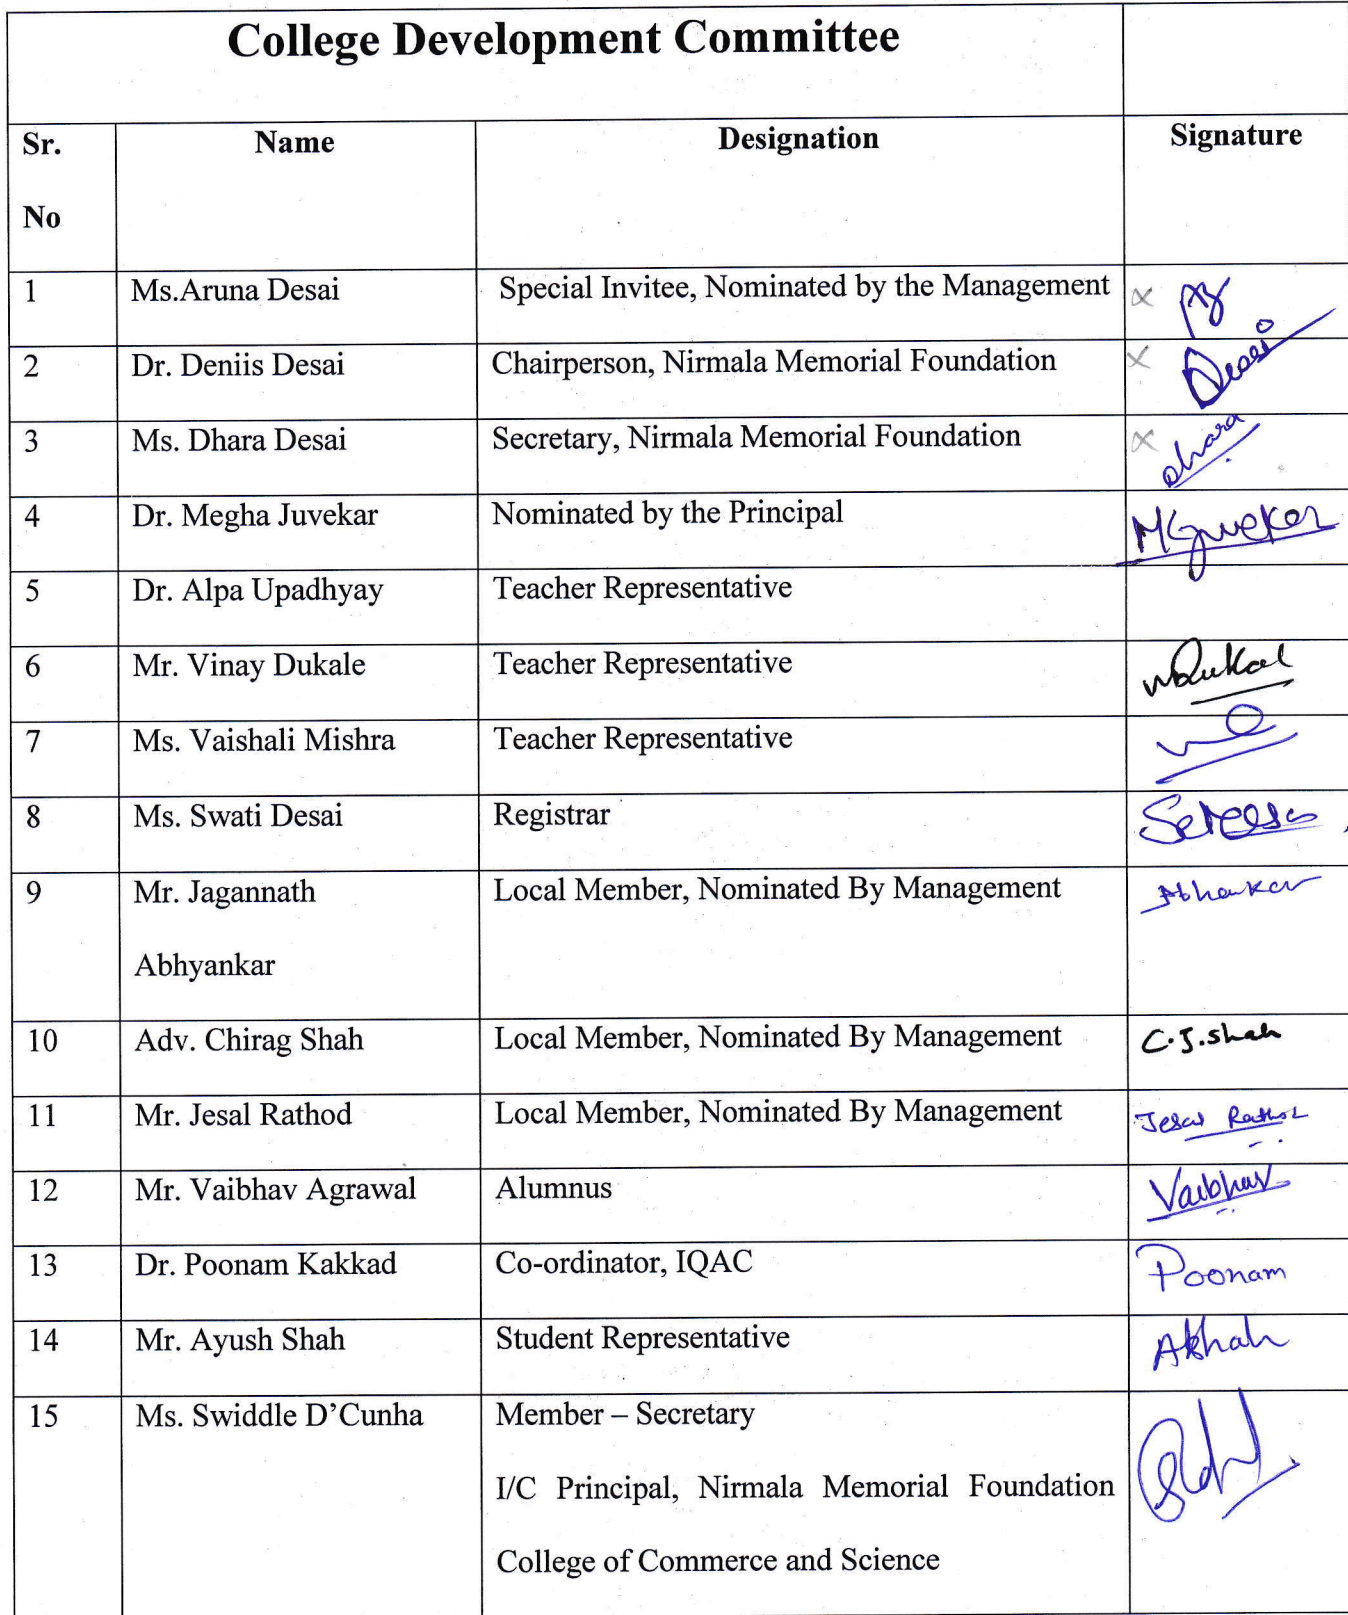 College Development Committee
Sr. No Name Designation Signature
1 Ms.Aruna Desai Special Invitee, Nominated by the Management x
2 Dr. Deniis Desai Chairperson, Nirmala Memorial Foundation x Desai
3 Ms. Dhara Desai Secretary, Nirmala Memorial Foundation x Dhara
4 Dr. Megha Juvekar Nominated by the Principal MGJuvekar
5 Dr. Alpa Upadhyay Teacher Representative
6 Mr. Vinay Dukale Teacher Representative
7 Ms. Vaishali Mishra Teacher Representative
8 Ms. Swati Desai Registrar
9 Mr. Jagannath Local Member, Nominated By Management
Abhyankar
10 Adv. Chirag Shah Local Member, Nominated By Management C.J.Shah
11 Mr. Jesal Rathod Local Member, Nominated By Management Jesal Rathod
12 Mr. Vaibhav Agrawal Alumnus Vaibhav
13 Dr. Poonam Kakkad Co-ordinator, IQAC Poonam
14 Mr. Ayush Shah Student Representative AShah
15 Ms. Swiddle D’Cunha Member – Secretary
I/C Principal, Nirmala Memorial Foundation
College of Commerce and Science